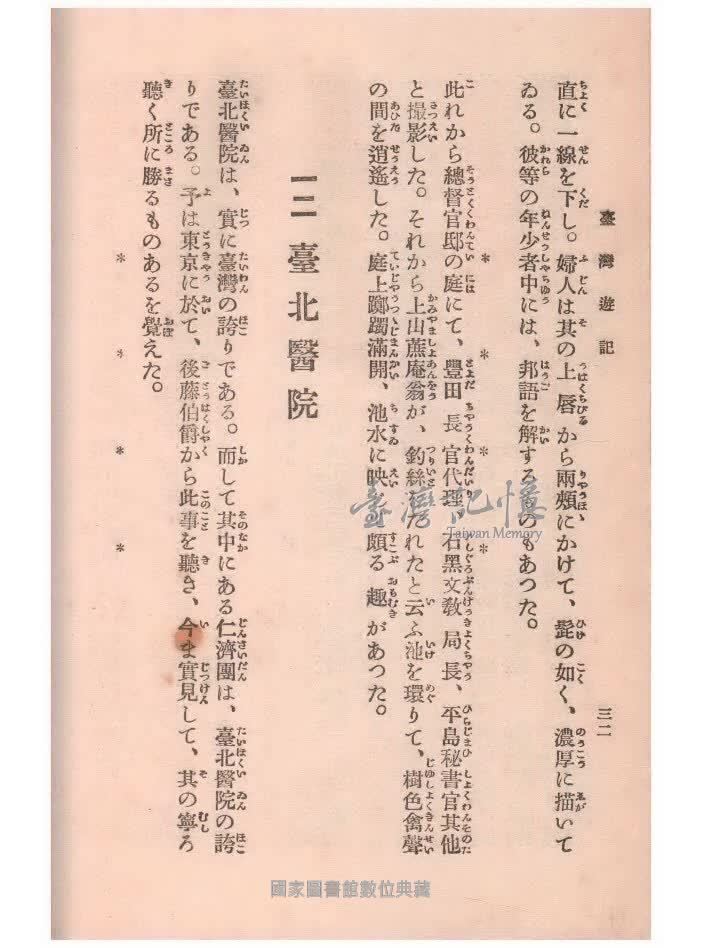 臺灣遊記
三二
直に一線を下し。婦人は其の上唇から兩頰にかけて、髭の如く、濃厚に描いて
ゐる。彼等の年少者中には、邦語を解するものもあつた。
* * * *
此れから總督官邸の庭にて、豐田長官代理、石黑文敎局長、平島秘書官其他
と撮影した。それから上山蔗庵翁が、釣絲をたれたと云ふ池を環りて、樹色禽聲
の間を逍遙した。庭上躑躅滿開、池水に映じ、頗る趣があつた。
一三 臺北醫院
臺北醫院は、實に臺灣の誇りである。而して其中にある仁濟團は、臺北醫院の誇
りである。予は東京に於て、後藤伯爵から此事を聽き、今ま實見して、其の寧ろ
聽く所に勝るものあるを覺えた。
* * * *
臺灣記憶
Taiwan Memory
國家圖書館數位典藏